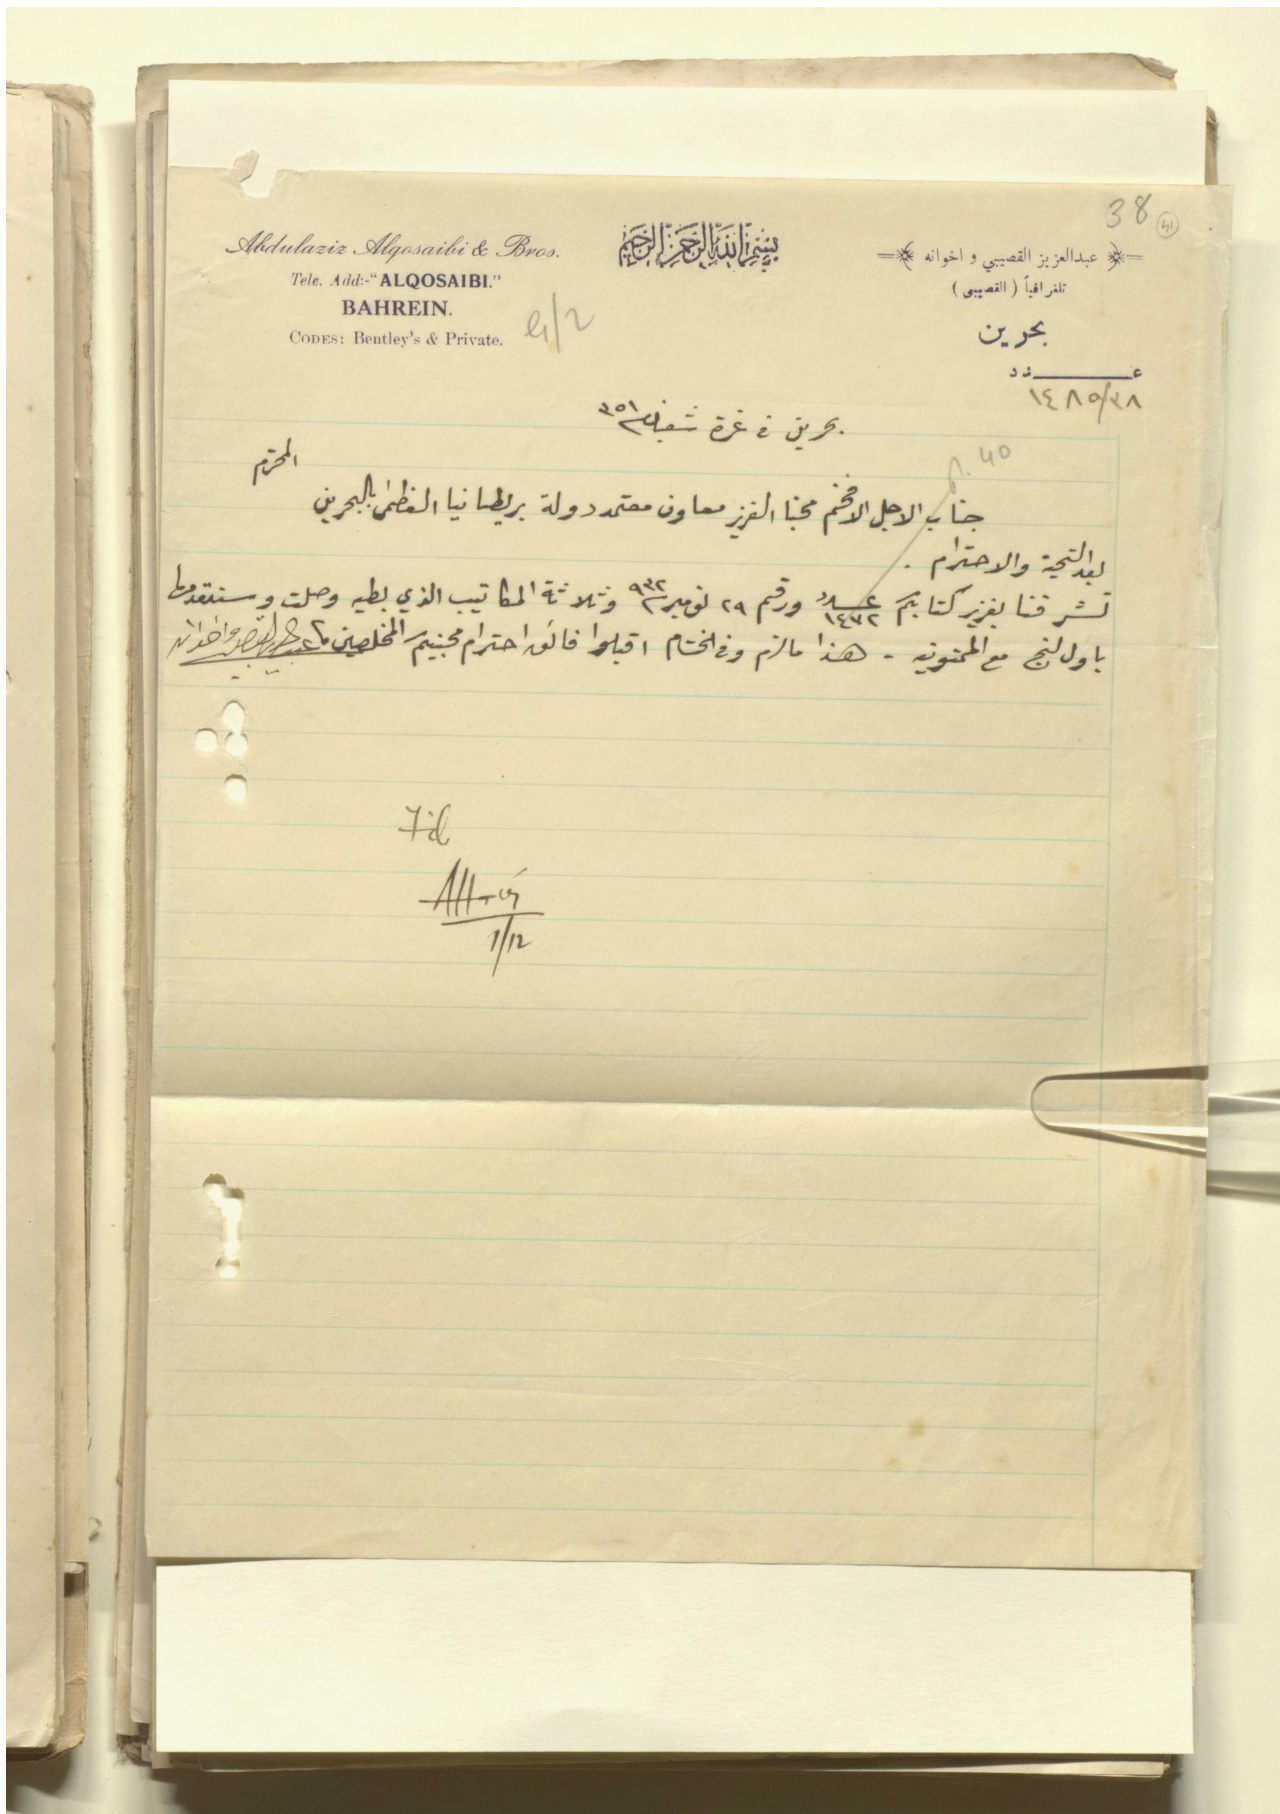 38
41
Abdulaziz Alqosaibi & Bros.
Tele. Add:-"ALQOSAIBI."
BAHREIN.
CODES: Bentley's & Private.
بسم الله الرحمن الرحيم
عبدالعزيز القصيبي و اخوانه
تلغرافياً ( القصيبي )
بحرين
عـــدد
١٤٨٥/٣٨
بحرين في غرة شعبان سنة ٣٥١
p. 40
جناب الاجل الافخم محبنا العزيز معاون معتمد دولة بريطانيا العظمى بالبحرين المحترم
بعد التحية والاحترام .
تشرفنا بعزيز كتابكم عدد ١٤٧٢ ورقم ٢٩ نوفمبر سنة ٩٣٢ وثلاثة المكاتيب الذي بطيه وصلت وسنقدمها
باول لنج مع الممنونيه - هذا مالزم وفي الختام اقبلوا فائق احترام محبيكم المخلصين عبدالعزيز القصيبي واخوانه
File
1/12